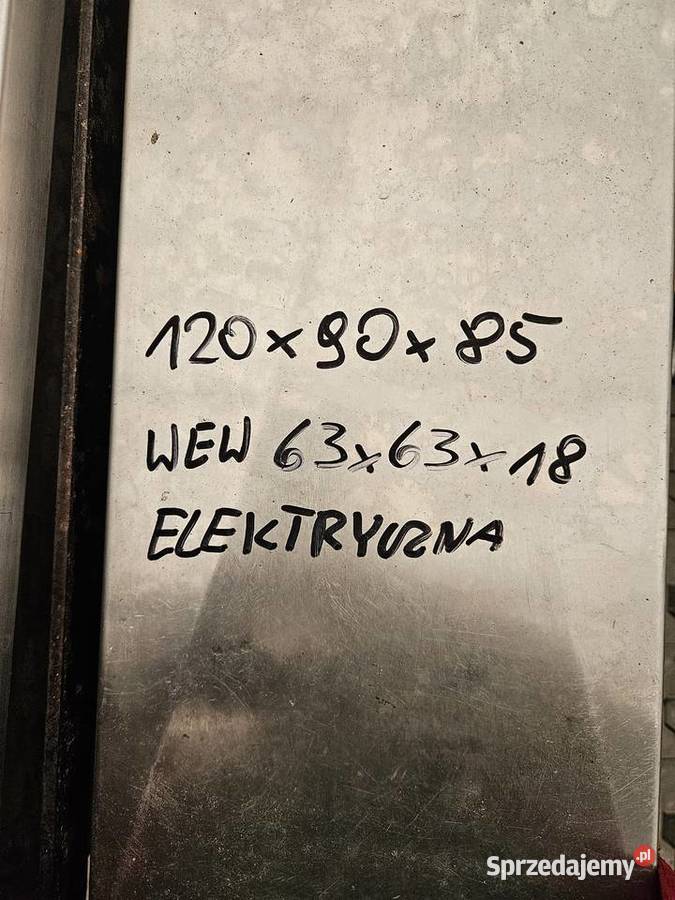 120x90x85
WEW 63x63x18
ELEKTRYCZNA
Sprzedajemy.pl